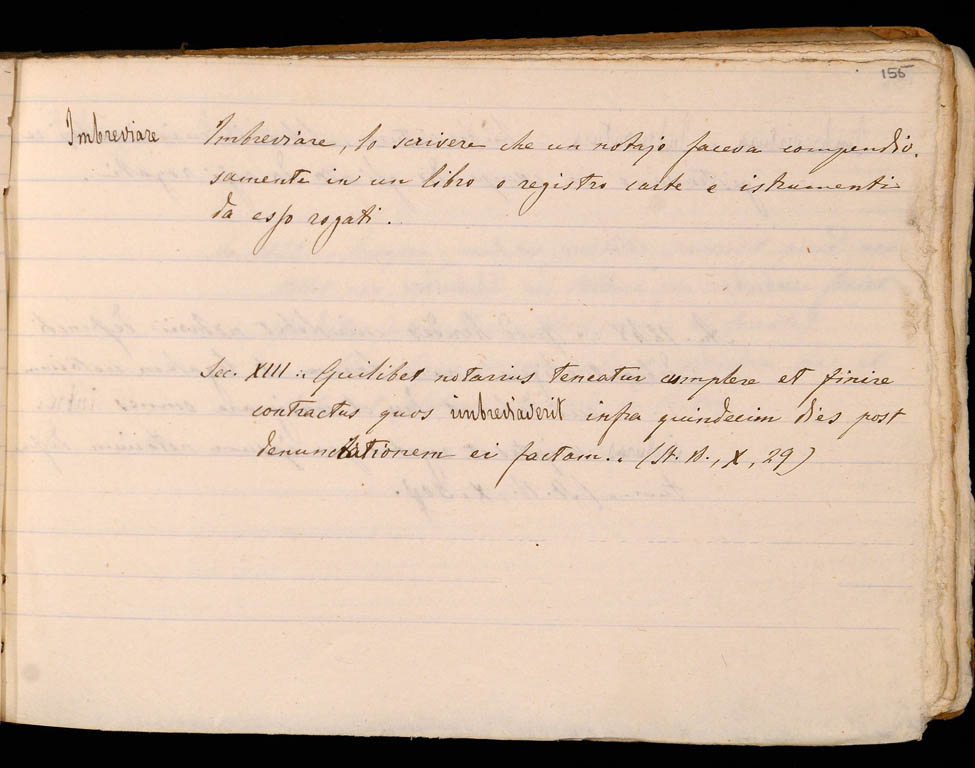 155
Imbreviare Imbreviare, lo scrivere che un notajo faceva compendio-
samente in un libro o registro carte e istrumenti
da esso rogati.
Sec. XIII.. Quilibet notarius teneatur complere et finire
contractus quos imbreviaverit infra quindecim dies post
denunctiationem ei factam.. (St. B., X, 29)